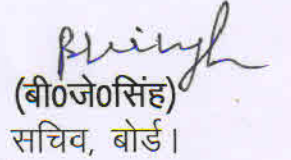 (बी0जे0सिंह)
सचिव, बोर्ड।